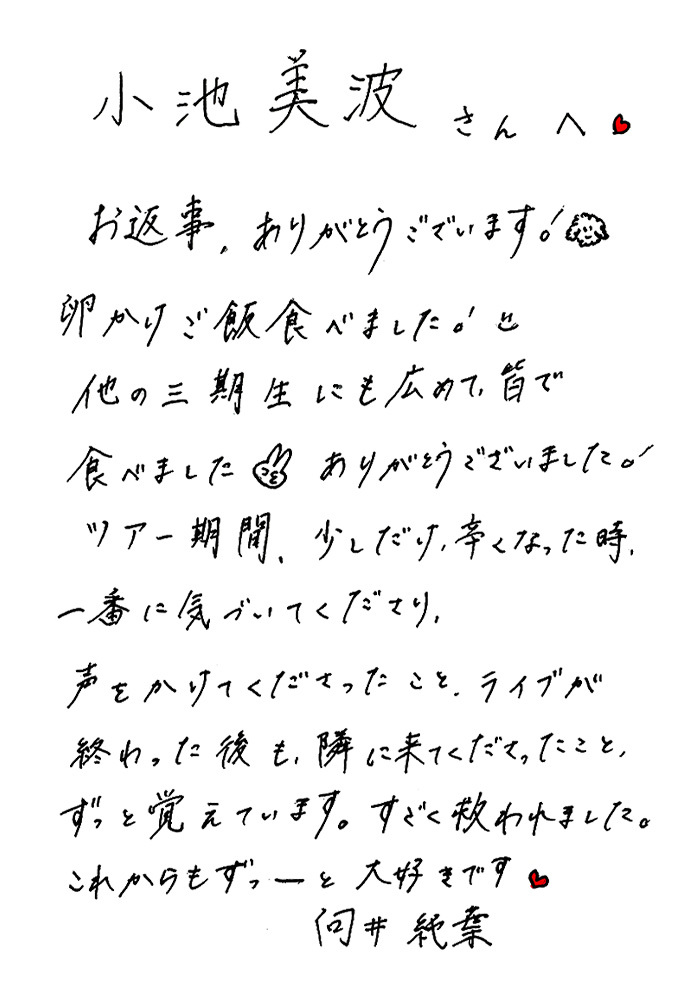 小池美波さんへ
お返事、ありがとうございます!
卵かけご飯食べました!
他の三期生にも広めて、皆で
食べました ありがとうございました!
ツアー期間、少しだけ、辛くなった時、
一番に気づいてくださり、
声をかけてくださったこと、ライブが
終わった後も、隣に来てくださったこと、
ずっと覚えています。すごく救われました。
これからもずっーと大好きです
向井純葉